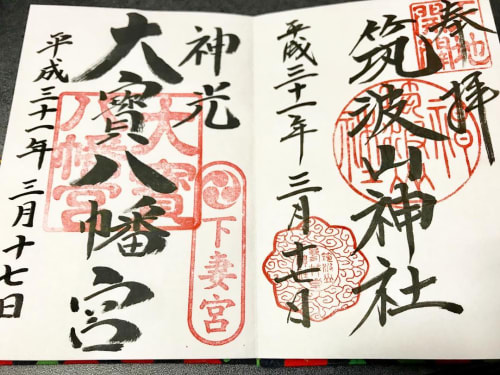 奉拝
筑波山神社
平成三十一年三月十七日
天地
開闢
神光
大寳八幡宮
大寳
八幡宮
下妻宮
平成三十一年三月十七日